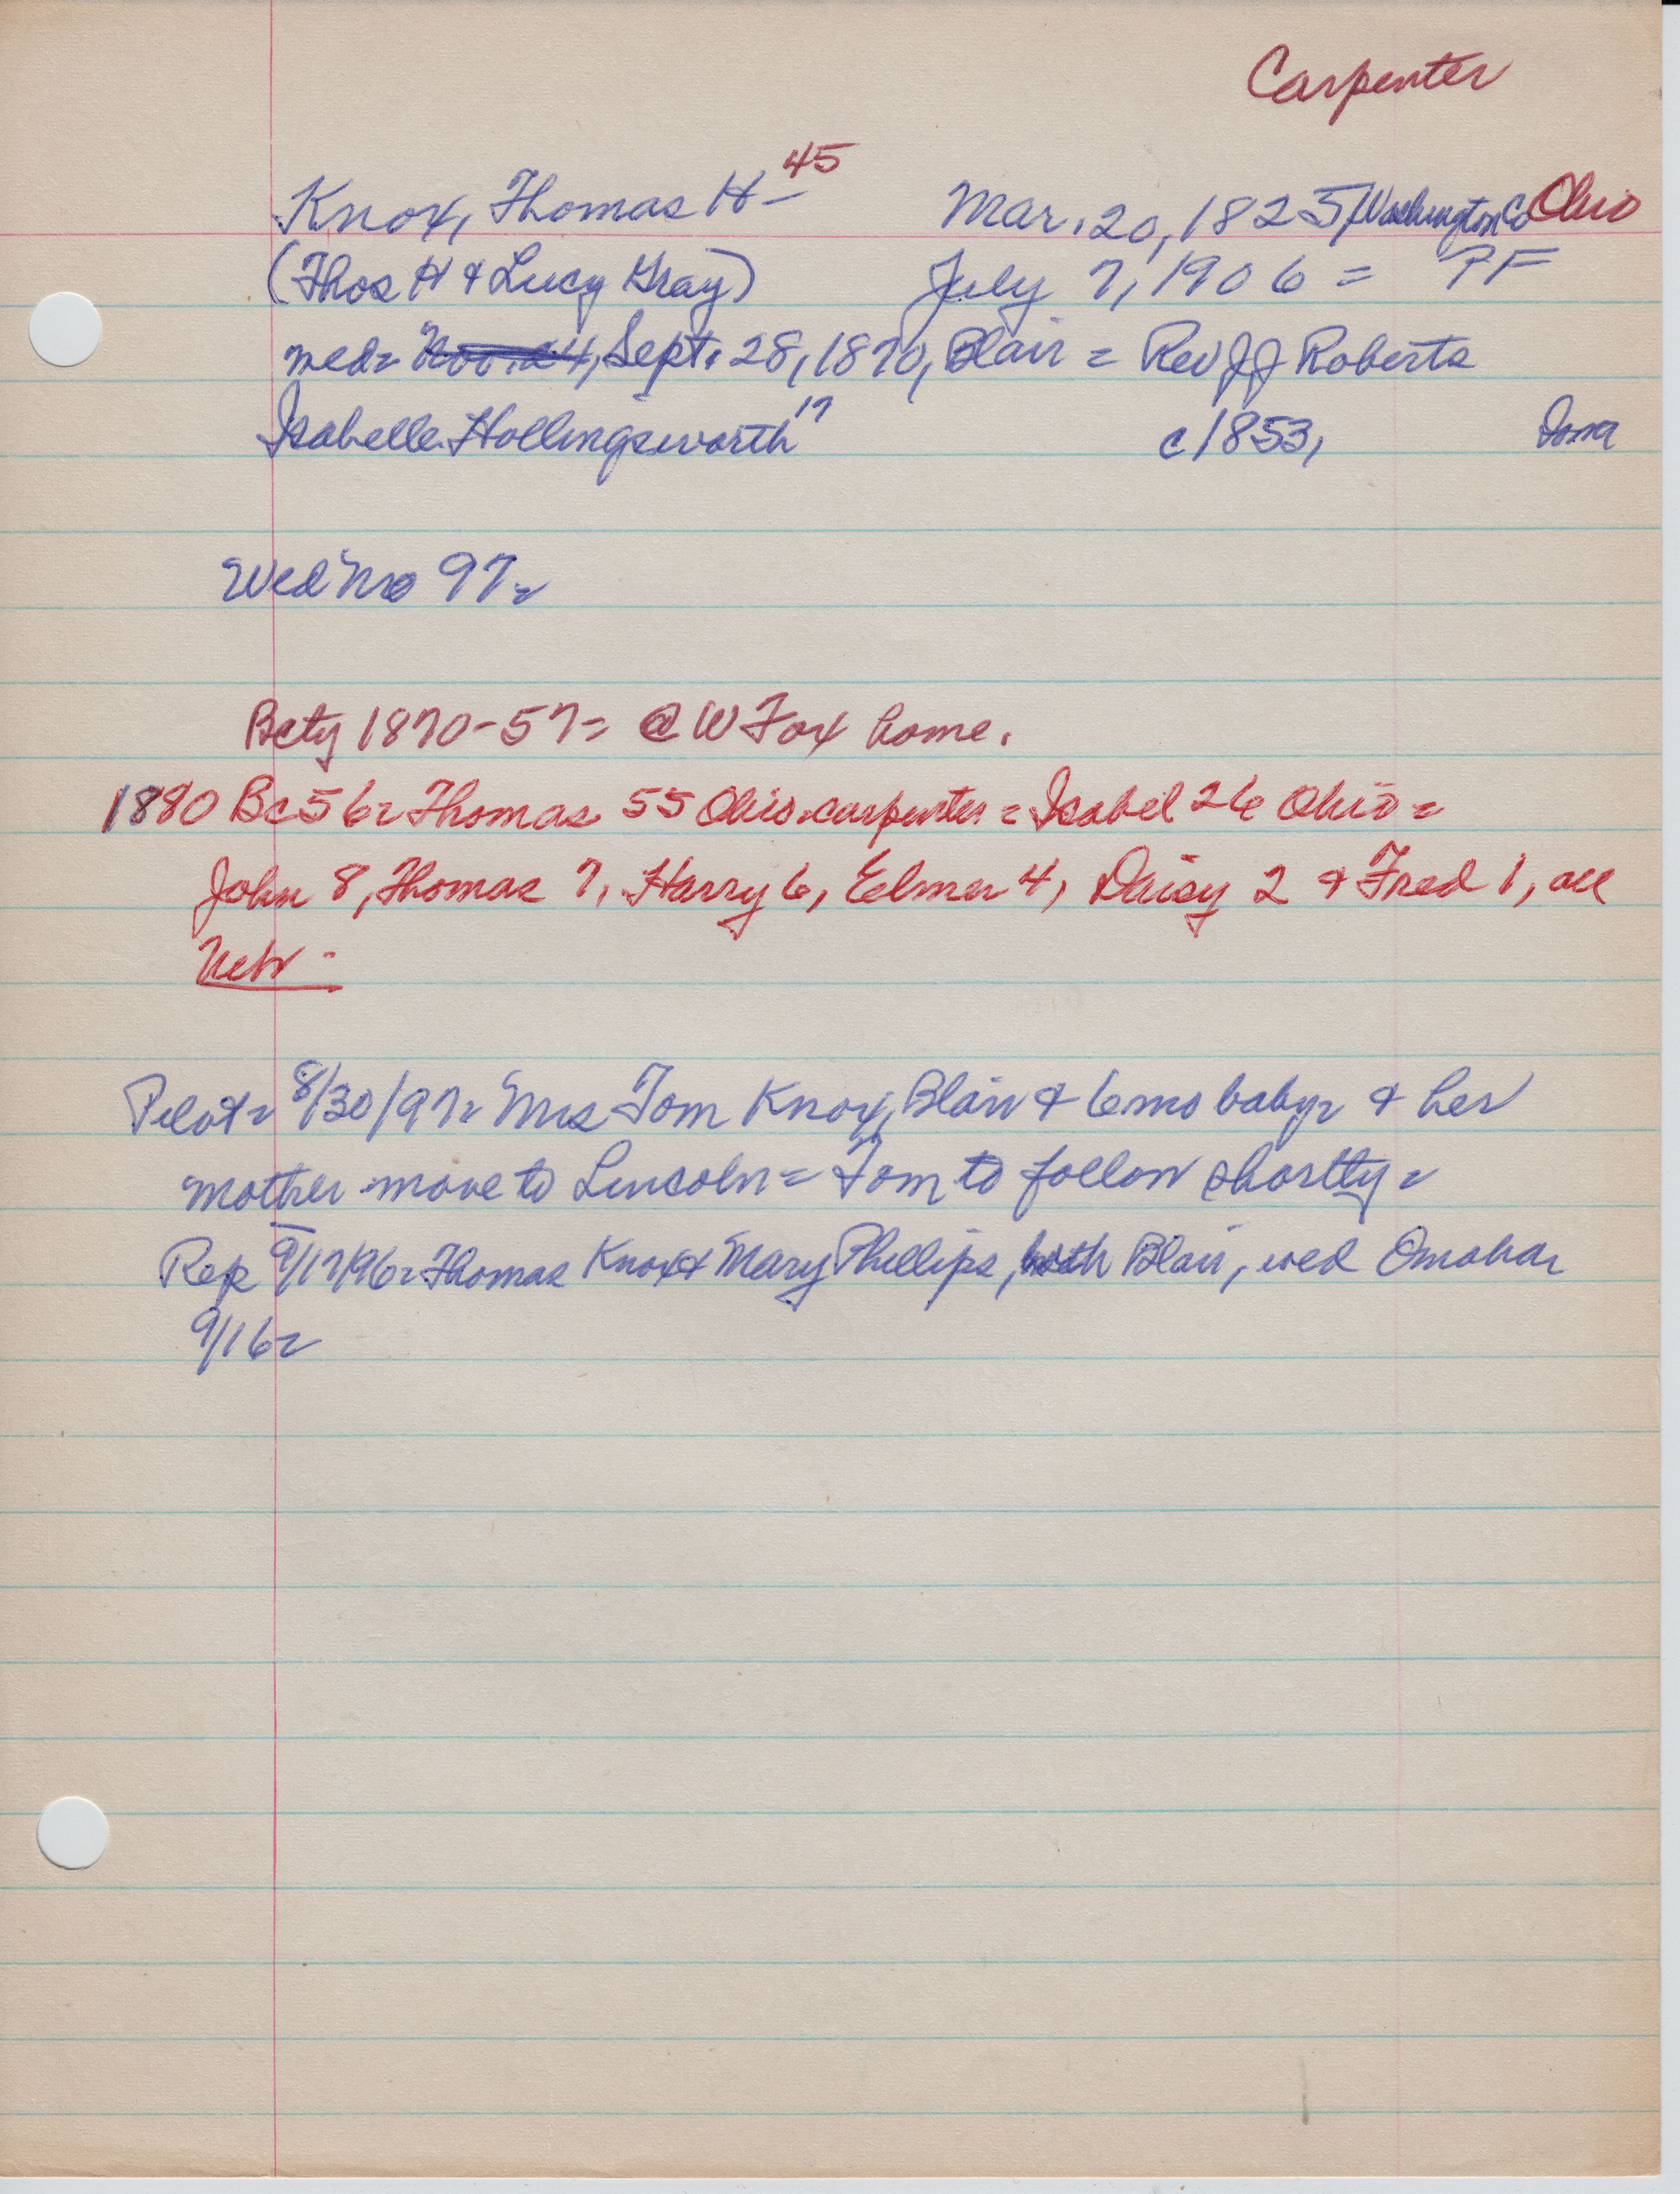 Carpenter
Knox, Thomas H - 45 Mar. 20, 1825, Washington Co Ohio
(Thos H & Lucy Gray) July 7, 1906 = PF
med= Nov. 24, Sept. 28, 1870, Blair = Rev J J Roberts
Isabelle Hollingsworth 17 c 1853, Iowa
Wed No 97=
Bcty 1870-57= @ W Fox home.
1880 Bc 56= Thomas 55 Ohio carpenter = Isabel 26 Ohio =
John 8, Thomas 7, Harry 6, Elmer 4, Daisy 2 & Fred 1, all
Neb -
Pilot= 8/30/97= Mrs Tom Knox, Blair & 6 mo baby= & her
mother move to Lincoln = Tom to follow shortly =
Rep 9/17/96= Thomas Knox & Mary Phillips, both Blair, wed Omaha=
9/16=